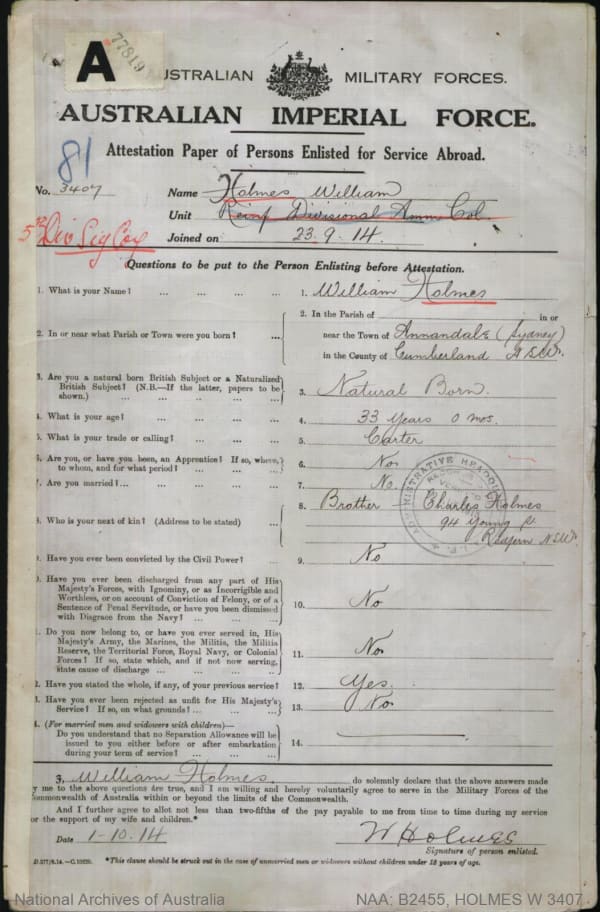 A
77819
USTRALIAN MILITARY FORCES.
AUSTRALIAN IMPERIAL FORCE.
Attestation Paper of Persons Enlisted for Service Abroad.
81
No. 3407
Name Holmes William
Unit Reinf Divisional Amm Col.
5th Div Sig Coy
Joined on 23.9.14.
Questions to be put to the Person Enlisting before Attestation.
1. What is your Name? ... ... ... ... 1. William Holmes
2. In or near what Parish or Town were you born? ... 2. In the Parish of in or
near the Town of Annandale (Sydney)
in the County of Cumberland N.S.W.
3. Are you a natural born British Subject or a Naturalized
British Subject? (N.B.—If the latter, papers to be
shown.) ... ... ... ... 3. Natural Born.
4. What is your age? ... ... ... 4. 33 years 0 mos.
5. What is your trade or calling? ... ... ... 5. Carter
6. Are you, or have you been, an Apprentice? If so, where,
to whom, and for what period? ... ... ... 6. No
7. Are you married? ... ... ... ... 7. No.
8. Who is your next of kin? (Address to be stated) ... 8. Brother Charles Holmes
94 Young St
Redfern N.S.W.
9. Have you ever been convicted by the Civil Power? ... 9. No
0. Have you ever been discharged from any part of His
Majesty's Forces, with Ignominy, or as Incorrigible and
Worthless, or on account of Conviction of Felony, or of a
Sentence of Penal Servitude, or have you been dismissed
with Disgrace from the Navy? ... ... ... 10. No
1. Do you now belong to, or have you ever served in, His
Majesty's Army, the Marines, the Militia, the Militia
Reserve, the Territorial Force, Royal Navy, or Colonial
Forces? If so, state which, and if not now serving,
state cause of discharge ... ... ... 11. No
2. Have you stated the whole, if any, of your previous service? 12. Yes.
3. Have you ever been rejected as unfit for His Majesty's
Service? If so, on what grounds? ... ... ... 13. No
4. (For married men and widowers with children)—
Do you understand that no Separation Allowance will be
issued to you either before or after embarkation
during your term of service? ... ... 14.
I, William Holmes. do solemnly declare that the above answers made
by me to the above questions are true, and I am willing and hereby voluntarily agree to serve in the Military Forces of the
Commonwealth of Australia within or beyond the limits of the Commonwealth.
And I further agree to allot not less than two-fifths of the pay payable to me from time to time during my service
for the support of my wife and children.*
Date 1-10.14 W Holmes
Signature of person enlisted.
*This clause should be struck out in the case of unmarried men or widowers without children under 18 years of age.
National Archives of Australia NAA: B2455, HOLMES W 3407